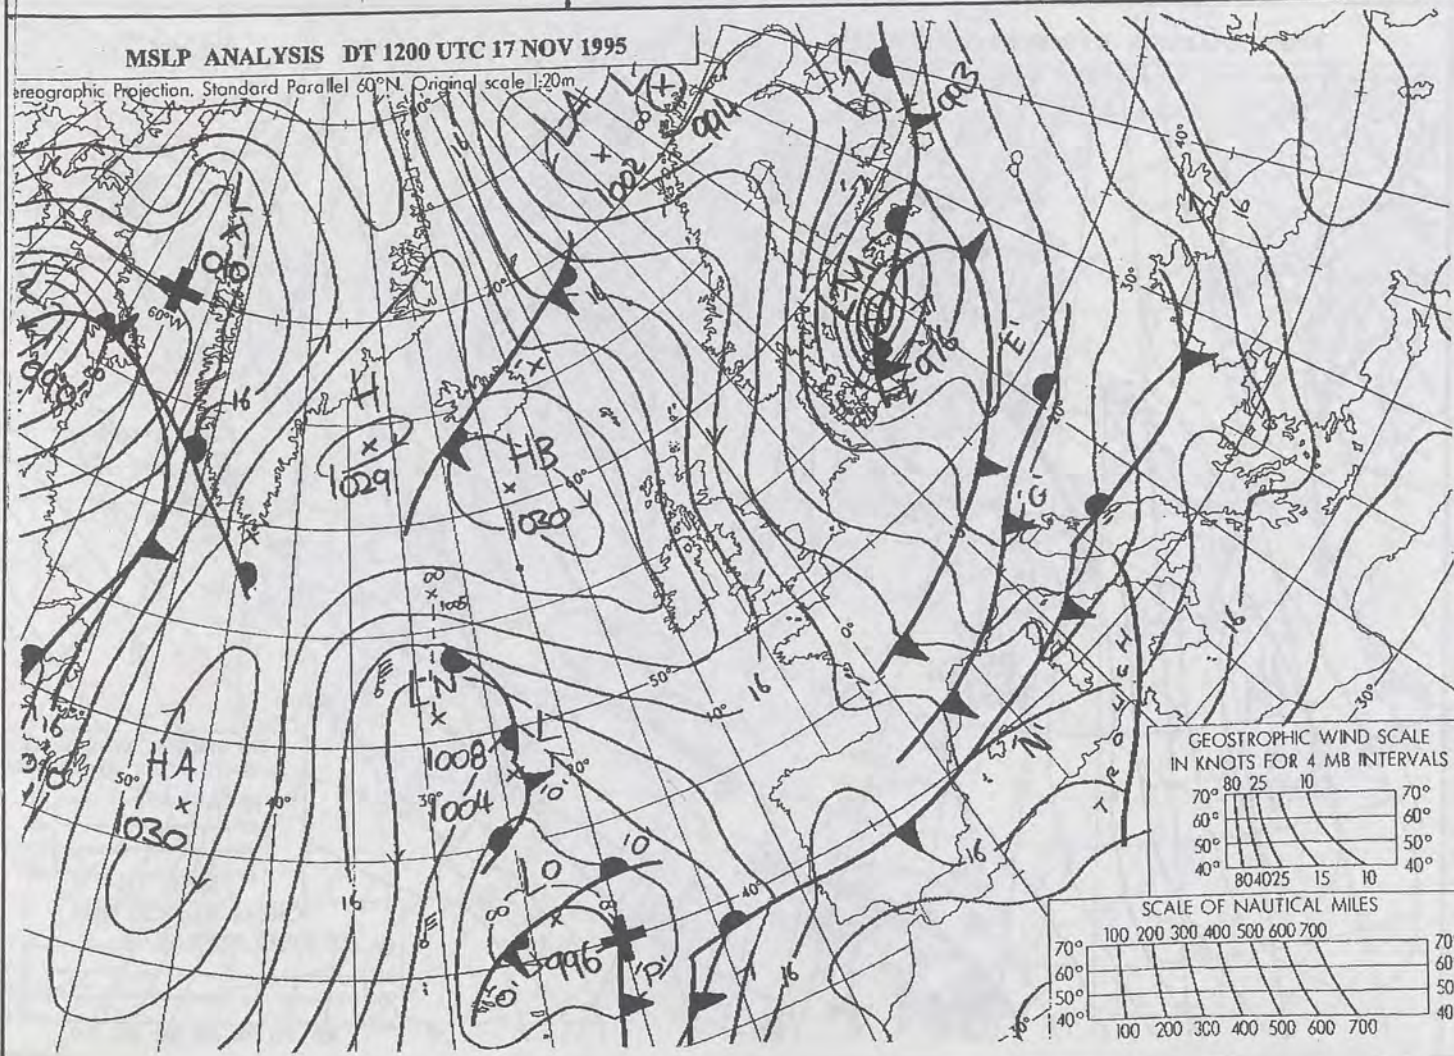 MSLP ANALYSIS DT 1200 UTC 17 NOV 1995
ereographic Projection. Standard Parallel 60°N. Original scale 1:20m
16
LA
1002
994
993
40°
16
30°
60°W
16
70°
16
LM
976
'E'
H
1029
HB
1030
60°
'G'
16
0°
50°
10°
16
HA
50°
1030
40°
LN
1008
1004
30°
L
20°
'O'
16
LO
'O'
996
'P'
40°
16
16
'N'
TROUGH
30°
GEOSTROPHIC WIND SCALE
IN KNOTS FOR 4 MB INTERVALS
80 25 10
70° 70°
60° 60°
50° 50°
40° 40°
80 40 25 15 10
SCALE OF NAUTICAL MILES
100 200 300 400 500 600 700
70° 70
60° 60
50° 50
40° 40
100 200 300 400 500 600 700